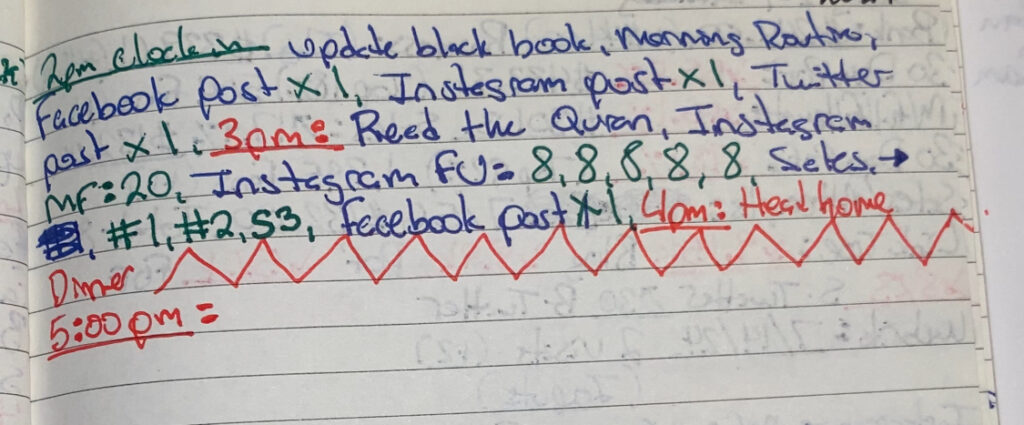 2pm clock in update black book, Morning Routine,
Facebook post x1, Instagram post x1, Twitter
post x1. 3pm: Read the Quran, Instagram
MF:20, Instagram FU= 8,8,8,8,8, Sales.→
, #1,#2,S3, facebook post x1, 4pm: Head home
Dinner
5:00pm=